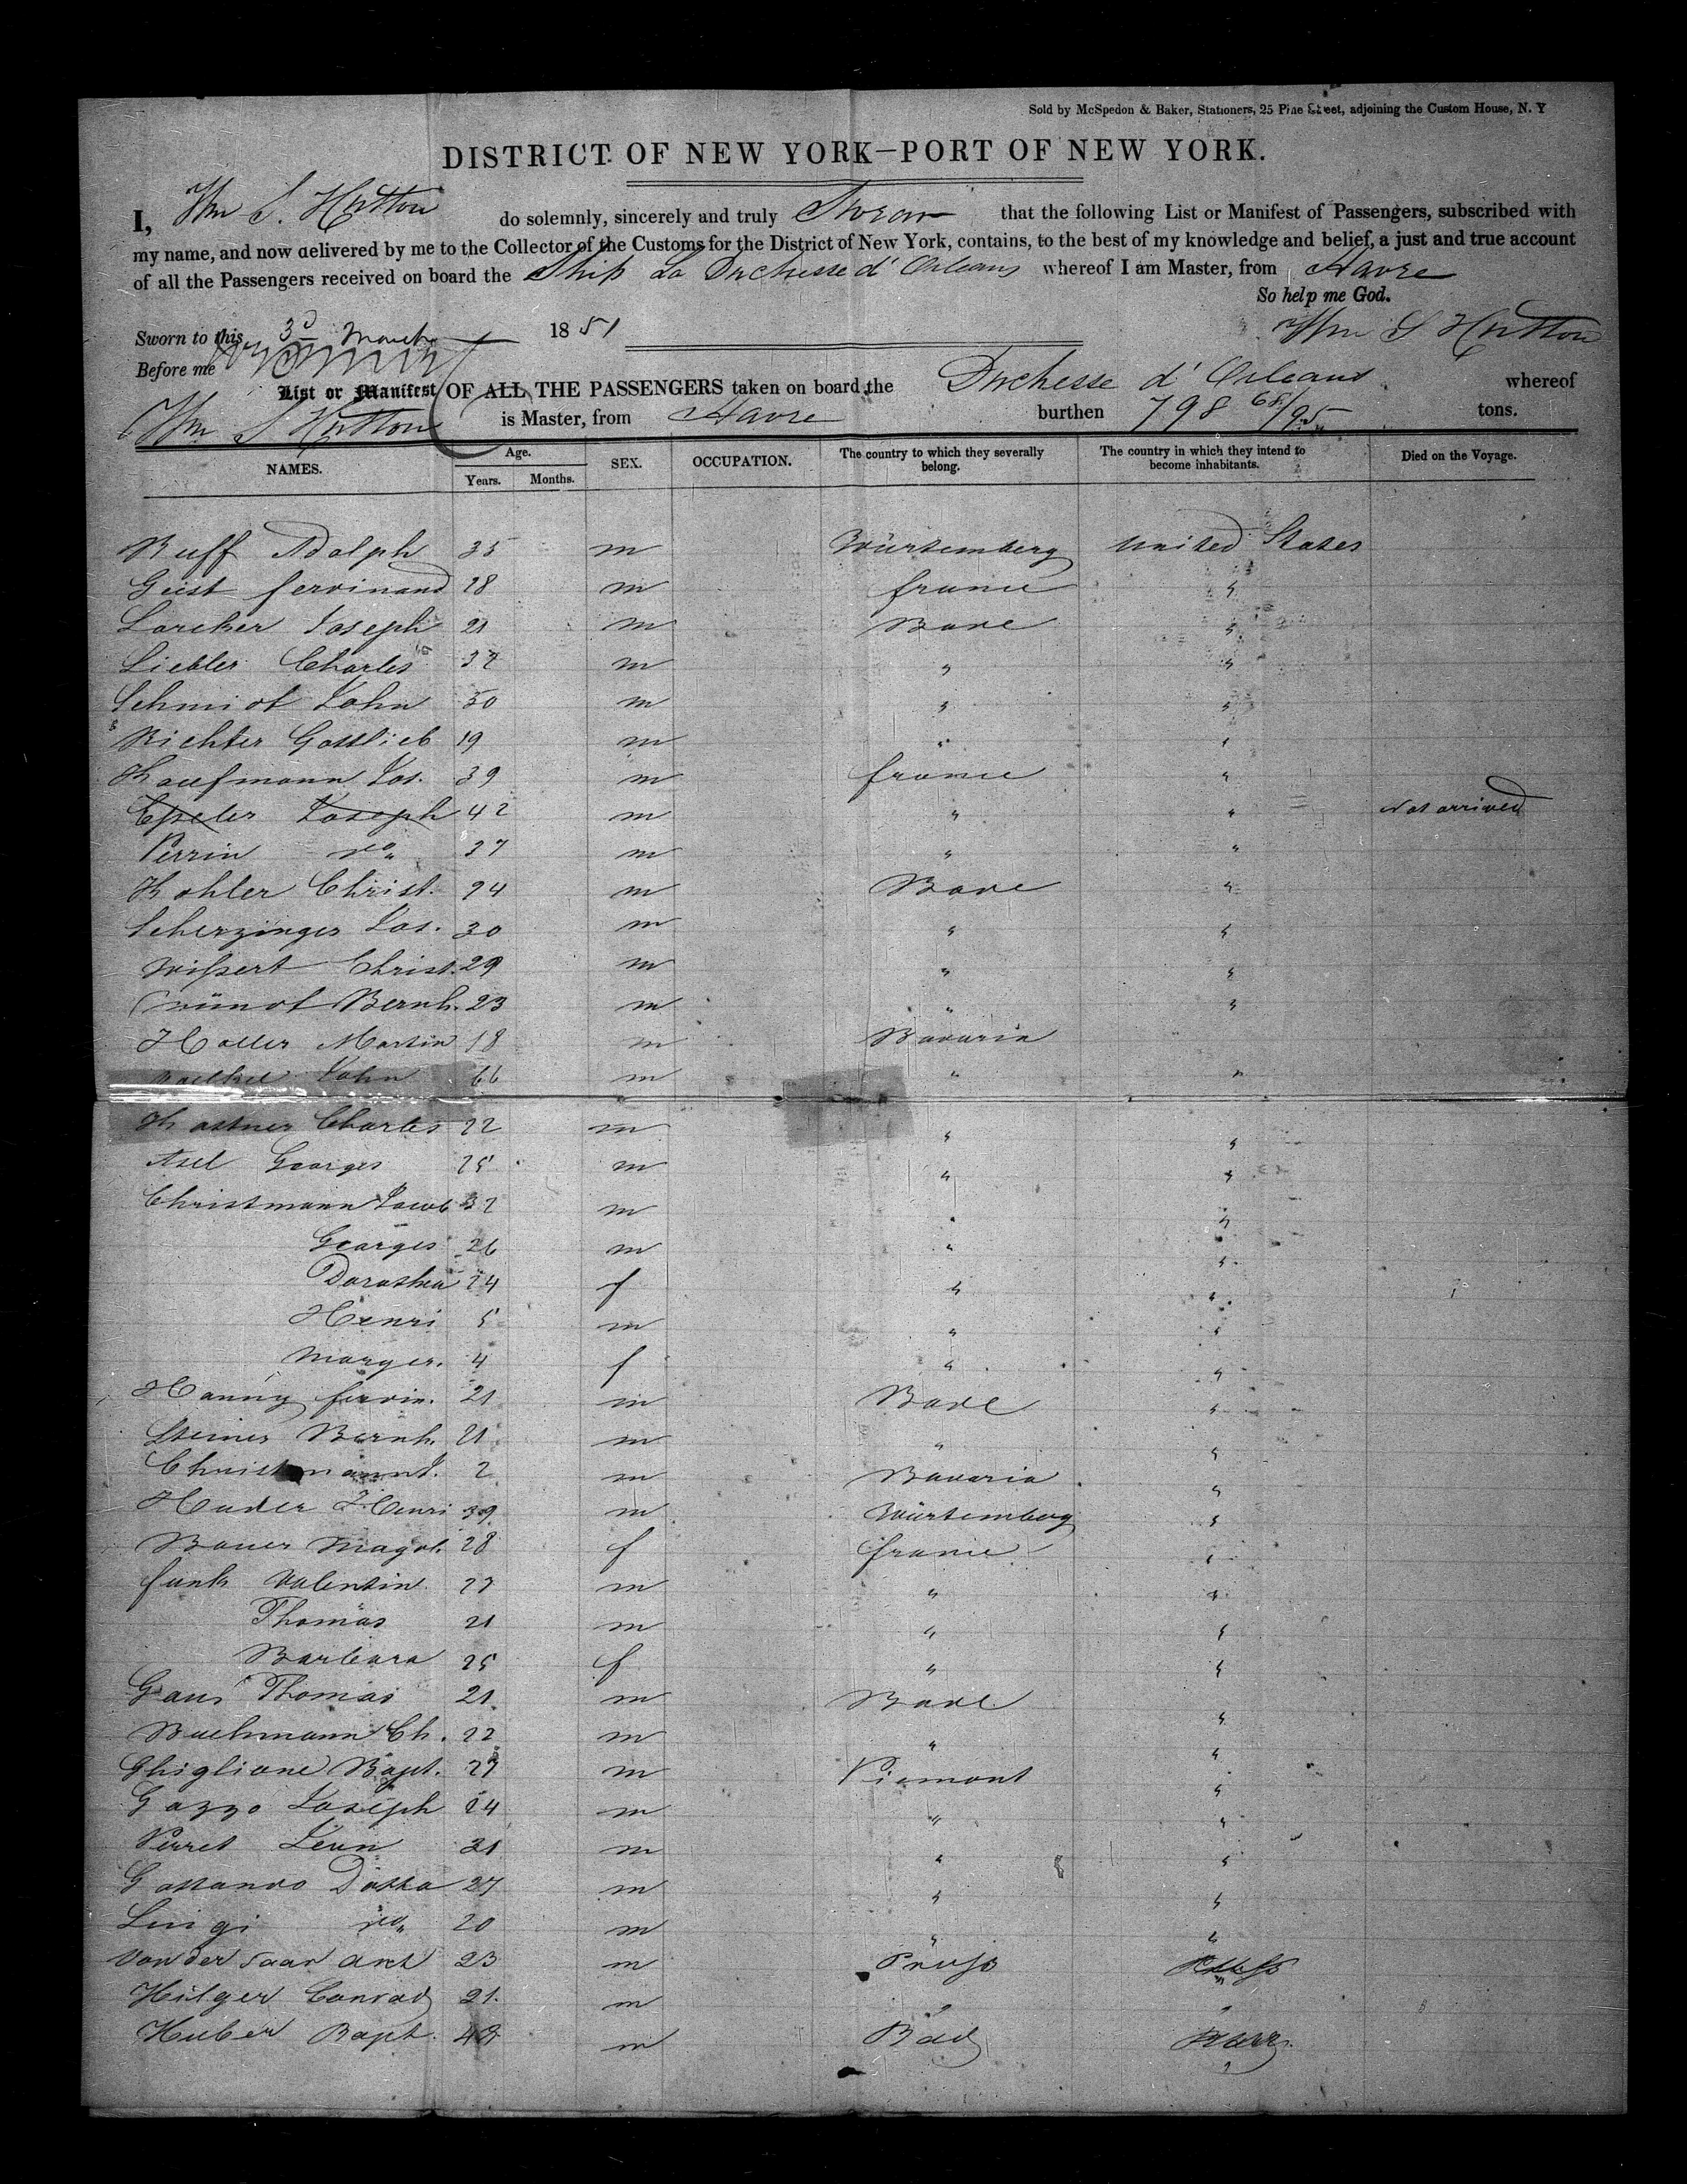 Sold by McSpedon & Baker, Stationers, 25 Pine Street, adjoining the Custom House, N. Y
DISTRICT OF NEW YORK—PORT OF NEW YORK.
I, Wm S. Hutton do solemnly, sincerely and truly Swear that the following List or Manifest of Passengers, subscribed with
my name, and now delivered by me to the Collector of the Customs for the District of New York, contains, to the best of my knowledge and belief, a just and true account
of all the Passengers received on board the Ship La Duchesse d' Orleans whereof I am Master, from Havre
So help me God.
Sworn to this 3d March 1851 Wm S Hutton
Before me
List or Manifest OF ALL THE PASSENGERS taken on board the Duchesse d' Orleans whereof
Wm S Hutton is Master, from Havre burthen 798 68/95 tons.
NAMES. Age. Years. Months. SEX. OCCUPATION. The country to which they severally belong. The country in which they intend to become inhabitants. Died on the Voyage.
Ruff Adolph 35 m Würtemberg United States
Geist ferdinand 28 m france "
Lorcher Joseph 21 m Bade "
Liebler Charles 37 m " "
Schmidt John 50 m " "
Richter Gottlieb 19 m " "
Kaufmann Jos. 39 m france "
Epeler Joseph 42 m " " Not arrived
Perrin do " 37 m " "
Kohler Christ. 24 m Bade "
Scherzinger Jos. 30 m " "
Wißert Christ. 29 m " "
Bernh. 23 m " "
Haller Martin 18 m Bavaria
John 66 m " "
Kastner Charles 22 m " "
Asel Georges 25 m " "
Christmann Jacob 32 m " "
Georges 26 m " "
Dorothea 24 f " "
Henri 5 m " "
Marger. 4 f " "
Hanny ferdin. 21 m Bade "
Steiner Bernh. 21 m " "
Christmann J. 2 m Bavaria "
Hauder Henri 39 m Würtemberg "
Bauer Magd. 28 f france "
funk Valentin 27 m " "
Thomas 21 m " "
Barbara 25 f " "
Gaus Thomas 21 m Bade "
Bachmann Ch. 22 m " "
Ghiglione Bapt. 27 m Piemont "
Gazzo Joseph 24 m " "
Perret Jean 31 m " "
27 m " "
Luigi do " 20 m " "
Von der Saar Ant 23 m Prusß "
Hilger Conrad 21 m " "
Huber Bapt. 43 m Bad "